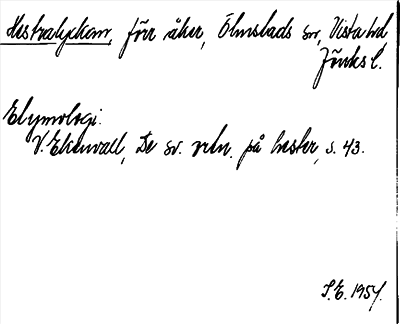 Hestralyckan, förr åker, Ölmstads sn, Vista hd
Jönk. l.
Etymologi:
V. Ekenvall, De sv. ortn. på hester, s. 43.
S.E. 1954.